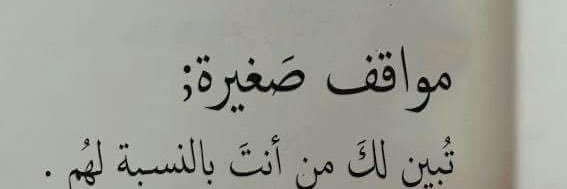 مواقف صَغيرة;
تُبين لكَ من أنتَ بالنسبة لهُم .